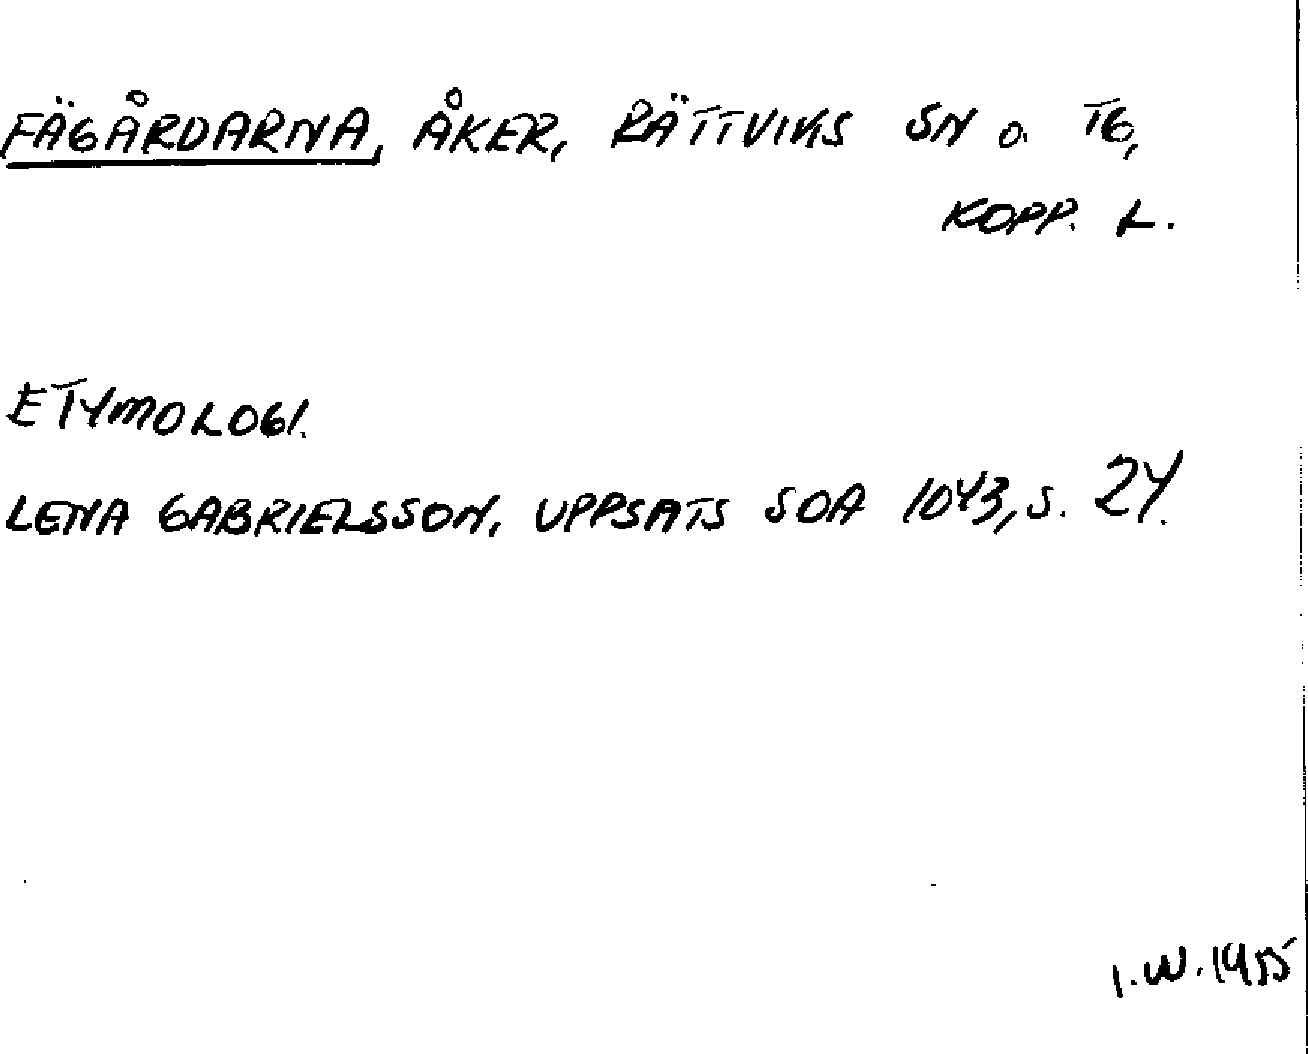 FÄGÅRDARNA, ÅKER, RÄTTVIKS SN o. TG,
KOPP. L.
ETYMOLOGI.
LENA GABRIELSSON, UPPSATS SOA 1043, S. 24.
I.W. 1955